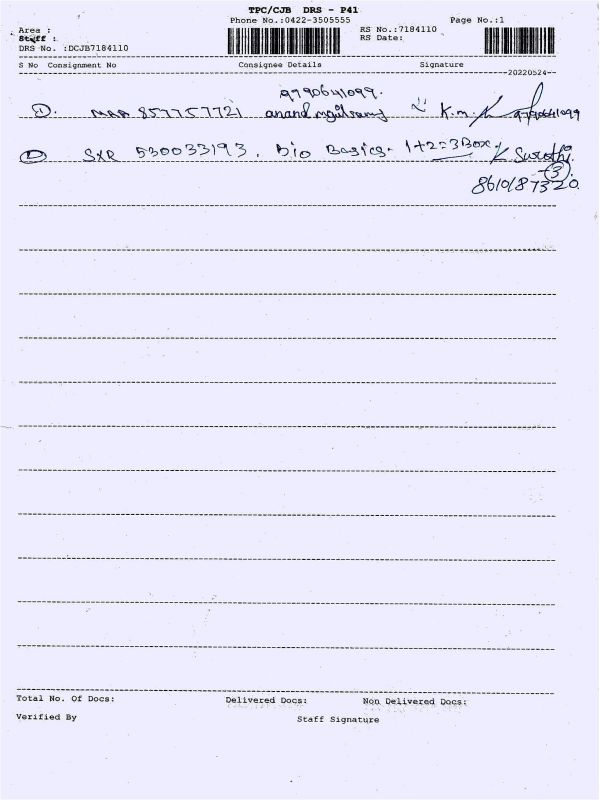 TPC/CJB DRS - P41
Phone No.:0422-3505555 Page No.:1
Area : RS No.:7184110
Staff : RS Date:
DRS No. :DCJB7184110
S No Consignment No Consignee Details Signature
20220524
9790641099.
1. MAA 857757721 anand K.m. 9790641099
2 SXR 530033193. Bio Basics- 1+2=3Box
3
8610187320.
Total No. Of Docs: Delivered Docs: Non Delivered Docs:
Verified By Staff Signature